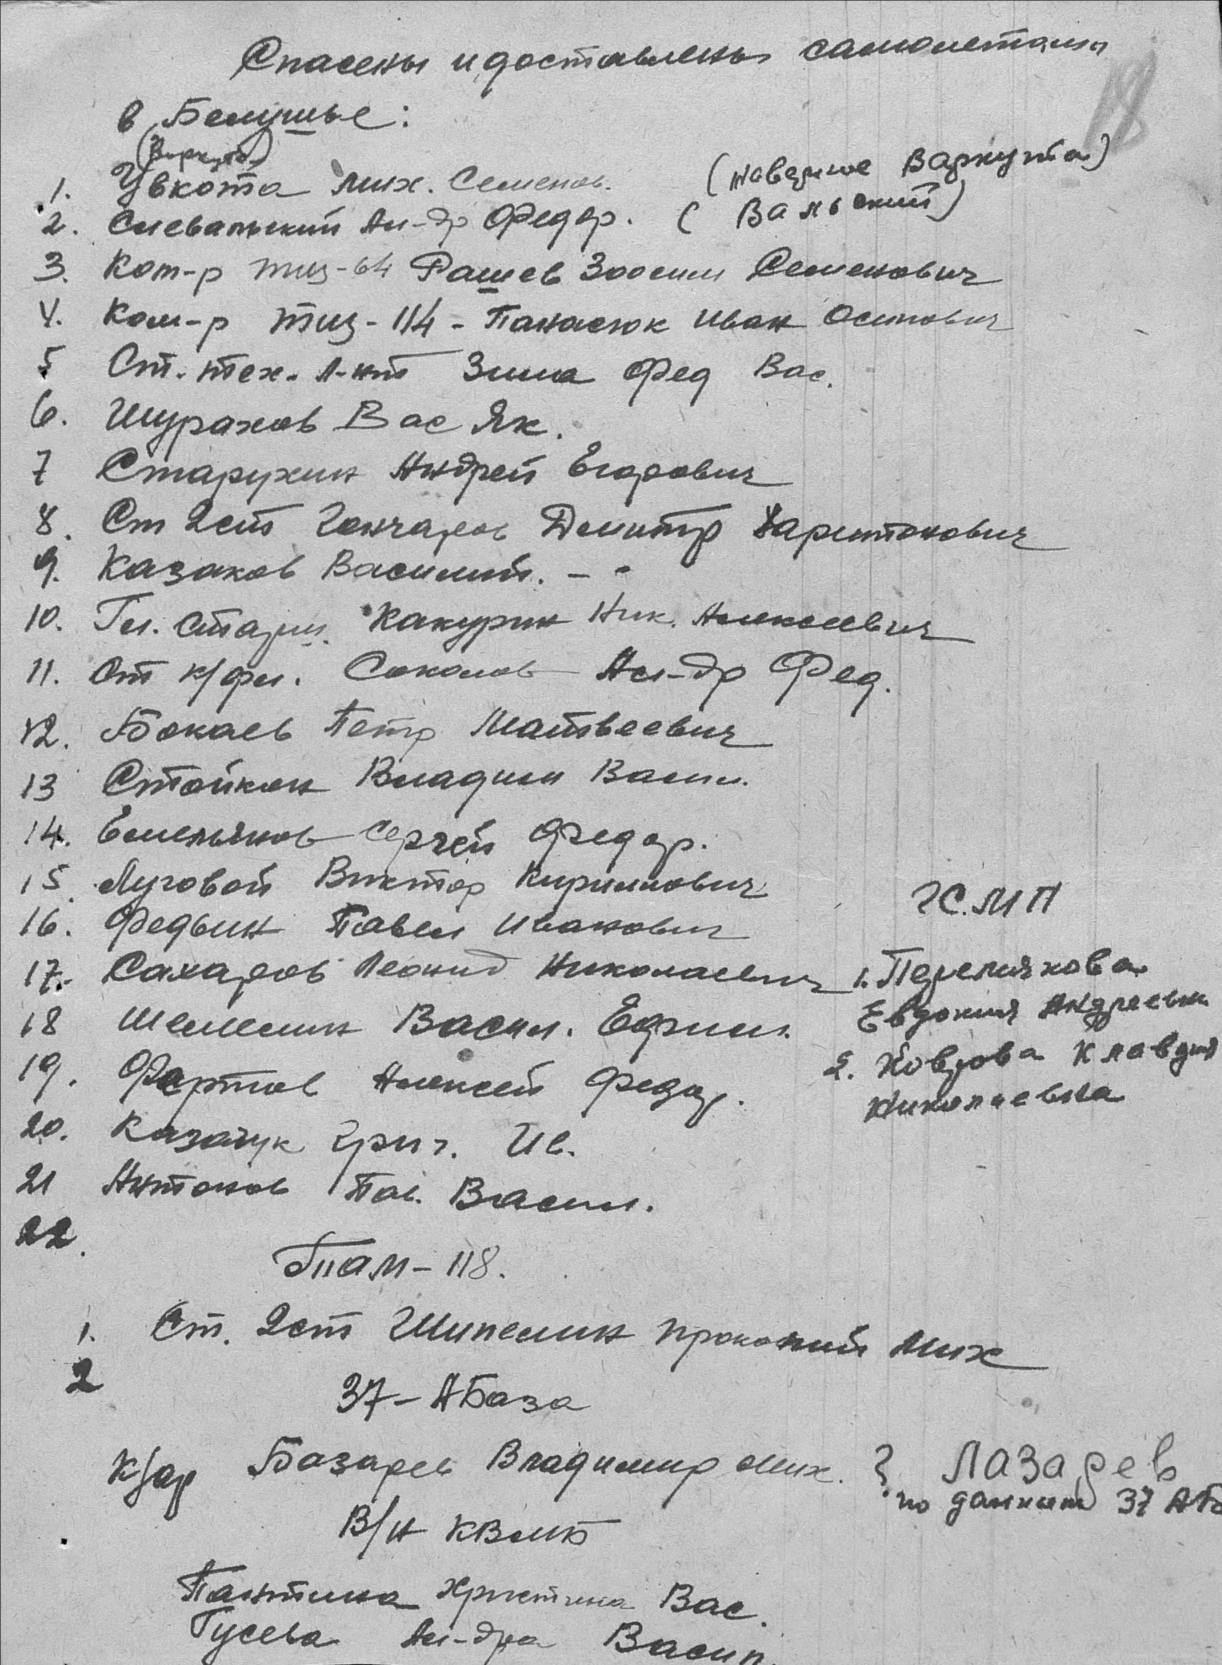 Спасены и доставлены самолетами
18
в Белушье:
(Варкута)
1. Увкота Мих. Семенов. (наверное Варкута)
2. Сиевальский Ал-др Федор. (Вальский)
3. Ком-р тщ-64 Рашев Зосим Семенович
4. Ком-р тщ-114 - Панасюк Иван Осипович
5 Ст. тех. л-нт Зима Фед Вас.
6. Шурахов Вас Як.
7 Старухин Андрей Егорович
8. Ст 2 ст Гончаров Дмитр Харитонович
9. Казаков Василий. -
10. Гл. старш. Какурин Ник. Алексеевич
11. Ст к/фл. Соколов Ал-др Фед.
12. Бокаев Петр Матвеевич
13 Стойкин Владим Васил.
14. Емельянов Сергей Федор.
15. Луговой Виктор Кириллович
ГСМП
16. Федьин Павел Иванович
17. Сахаров Леонид Николаевич
1. Перемякова
Евдокия Андреевн
18 Шемелин Васил. Ефим.
2. Ковров­а Клавдия
Николаевна
19. Фертов Алексей Федор.
20. Казачук Григ. Ив.
21 Антонов Пав. Васил.
22.
БПАМ-118.
1. Ст. 2 ст Шипелин Прокопий Мих
2
37-АБаза
К/ар Базарев Владимир Мих. ? Лазарев
по данным 37 АБ
В/н КВМБ
Пантина Христина Вас.
Гусева Ал-дра Васил.